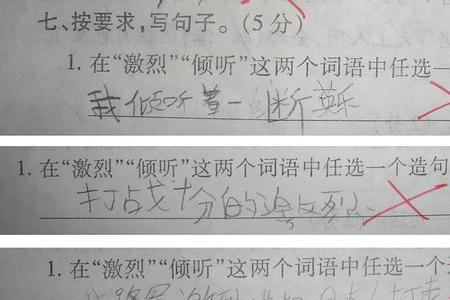 七、按要求,写句子。(5分)
1. 在“激烈”“倾听”这两个词语中任选一
我倾听着一断音乐
1. 在“激烈”“倾听”这两个词语中任选一个造句
打战十分的激烈。
1. 在“激烈”“倾听”这两个词语中任选一个